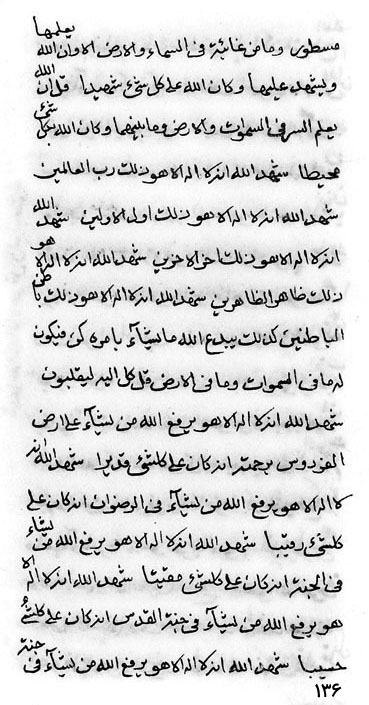 مسطور وما من غائبة فى السماء والارض الا وان الله يعلمها
ويشهد عليها وكان الله على كل شئ شهيدا قل ان الله
يعلم السر فى السموات والارض وما بينهما وكان الله بكل شئ
محيطا شهد الله انه لا اله الا هو ذلك رب العالمين
شهد الله انه لا اله الا هو ذلك اول الاولين شهد الله
انه لا اله الا هو ذلك اخر الاخرين شهد الله انه لا اله الا هو
ذلك ظاهر الظاهرين شهد الله انه لا اله الا هو ذلك باطن
الباطنين كذلك يبدع الله ما يشآء بامره كن فيكون
له ما فى السموات وما فى الارض قل كل اليه ليقلبون
شهد الله انه لا اله الا هو يرفع الله من يشآء على ارض
الفردوس برحمته انه كان على كلشئ قديرا شهد الله انه
لا اله الا هو يرفع الله من يشآء فى الرضوان انه كان على
كلشئ رقيبا شهد الله انه لا اله الا هو يرفع الله من يشآء
فى الجنة انه كان على كلشئ مقيتا شهد الله انه لا اله الا
هو يرفع الله من يشآء فى جنة القدس انه كان على كلشئ
حسيبا شهد الله انه لا اله الا هو يرفع الله من يشآء فى جنة
۱۳۶